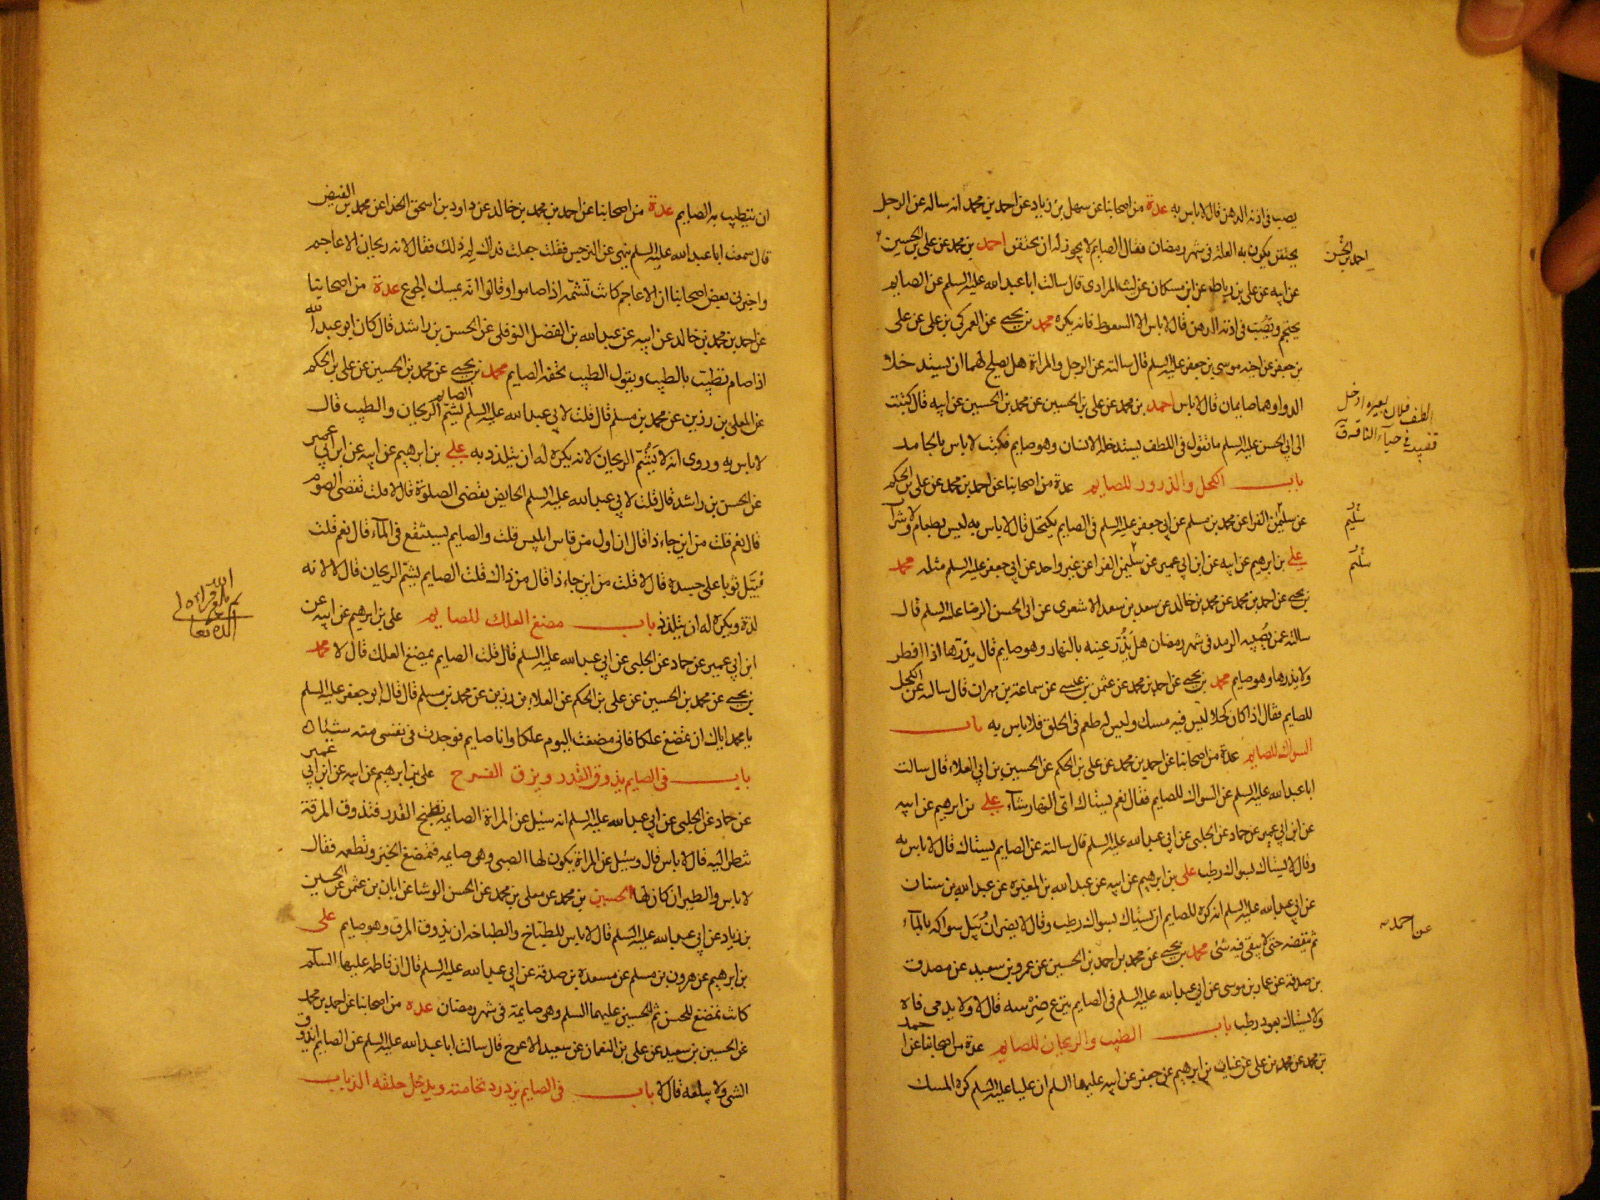 يصب في اذنه الدهن قال لاباس به عدة من اصحابنا عن سهل بن زياد عن احمد بن محمد انه ساله عن الرجل
يحتقن يكون به العلة في شهر رمضان فقال الصايم لا يجوز له ان يحتقن احمد بن محمد عن علي بن الحسين
عن ابيه عن علي بن رباط عن ابن مسكان عن ليث المرادي قال سالت ابا عبد الله عليه السلم عن الصايم
يحتجم ويصب في اذنه الدهن قال لاباس الا السعوط فانه يكره محمد بن يحيى عن العمركي بن علي عن علي
بن جعفر عن اخيه موسى بن جعفر عليه السلم قال سالته عن الرجل والمراة هل يصلح لهما ان يستدخلا
الدوا وهما صايمان قال لاباس احمد بن محمد عن علي بن الحسين عن محمد بن الحسين عن ابيه قال كتبت
الى ابي الحسن عليه السلم ما تقول في اللطف يستدخله الانسان وهو صايم فكتب لاباس بالجامد
باب الكحل والذرور للصايم عدة من اصحابنا عن احمد بن محمد عن علي بن الحكم
عن سليمن الفرا عن محمد بن مسلم عن ابي جعفر عليه السلم في الصايم يكتحل قال لاباس به ليس بطعام ولا شراب
علي بن ابرهيم عن ابيه عن ابن ابي عمير عن سليمن الفرا عن غير واحد عن ابي جعفر عليه السلم مثله محمد
بن يحيى عن احمد بن محمد عن محمد بن خالد عن سعد بن سعد الاشعري عن ابي الحسن الرضا عليه السلم قال
سالته عمن يصيبه الرمد في شهر رمضان هل يذر عينه بالنهار وهو صايم قال يذرها اذا افطر
ولا يذرها وهو صايم محمد بن يحيى عن احمد بن محمد عن عثمن بن عيسى عن سماعة بن مهران قال سالته عن الكحل
للصايم فقال اذا كان كحلا ليس فيه مسك وليس له طعم في الحلق فلا باس به باب
السواك للصايم عدة من اصحابنا عن احمد بن محمد عن علي بن الحكم عن الحسين بن ابي العلاء قال سالت
ابا عبد الله عليه السلم عن السواك للصايم فقال نعم يستاك اي النهار شآء علي بن ابرهيم عن ابيه
عن ابن ابي عمير عن حماد عن الحلبي عن ابي عبد الله عليه السلم قال سالته عن الصايم يستاك قال لاباس به
وقال لا يستاك بسواك رطب علي بن ابرهيم عن ابيه عن عبد الله بن المغيرة عن عبد الله بن سنان
عن ابي عبد الله عليه السلم انه كره للصايم ان يستاك بسواك رطب وقال لا يضر ان يبل سواكه بالمآء
ثم ينفضه حتى لا يبقى فيه شئ محمد بن يحيى عن محمد بن احمد بن الحسين عن عمرو بن سعيد عن مصدق
بن صدقه عن عمار بن موسى عن ابي عبد الله عليه السلم في الصايم ينزع ضرسه قال لا ولا يدمي فاه
ولا يستاك بعود رطب باب الطيب والريحان للصايم عدة من اصحابنا عن احمد
بن محمد عن محمد بن علي عن غياث بن ابرهيم عن جعفر عن ابيه عليهما السلم ان عليا عليه السلم كره المسك
سليم
سليم
عن احمد
ان يتطيب به الصايم عدة من اصحابنا عن احمد بن محمد بن خالد عن داود بن اسحق الحذا عن محمد بن الفيض
قال سمعت ابا عبد الله عليه السلم ينهى عن النرجس فقلت جعلت فداك لم ذلك فقال لانه ريحان الاعاجم
واخبرني بعض اصحابنا ان الاعاجم كانت تشمه اذا صاموا وقالوا انه يمسك الجوع عدة من اصحابنا
عن احمد بن محمد بن خالد عن ابيه عن عبد الله بن الفضل النوفلي عن الحسن بن راشد قال كان ابو عبد الله
اذا صام تطيب بالطيب ويقول الطيب تحفة الصايم محمد بن يحيى عن محمد بن الحسين عن علي بن الحكم
عن العلى بن رزين عن محمد بن مسلم قال قلت لابي عبد الله عليه السلم الصايم يشم الريحان والطيب قال
لاباس به وروي انه لا يشم الريحان لانه يكره له ان يتلذذ به علي بن ابرهيم عن ابيه عن ابن ابي عمير
عن الحسن بن راشد قال قلت لابي عبد الله عليه السلم الحايض يقضي الصلوة قال لا قلت تقضي الصوم
قال نعم قلت من اين جاء ذا قال ان اول من قاس ابليس قلت والصايم يستنقع في المآء قال نعم قلت
فيبل ثوبا على جسده قال لا قلت من اين جاء ذا قال من ذاك قلت الصايم يشم الريحان قال لا لانه
لذة ويكره له ان يتلذذ باب مضغ العلك للصايم علي بن ابرهيم عن ابيه عن
ابن ابي عمير عن حماد عن الحلبي عن ابي عبد الله عليه السلم قال قلت الصايم يمضغ العلك قال لا محمد
بن يحيى عن محمد بن الحسين عن علي بن الحكم عن العلاء بن رزين عن محمد بن مسلم قال قال ابو جعفر عليه السلم
يا محمد اياك ان تمضغ علكا فاني مضغت اليوم علكا وانا صايم فوجدت في نفسي منه شيئا
باب في الصايم يذوق القدر ويزق الفرخ علي بن ابرهيم عن ابيه عن ابن ابي عمير
عن حماد عن الحلبي عن ابي عبد الله عليه السلم انه سئل عن المراة الصايمة تطبخ القدر فتذوق المرقة
تنظر اليه قال لاباس قال وسئل عن المراة يكون لها الصبي وهي صايمه فتمضغ الخبز وتطعمه فقال
لاباس والطير ان كان لها الحسين بن محمد عن معلى بن محمد عن الحسن الوشا عن ابان بن عثمن عن الحسين
بن زياد عن ابي عبد الله عليه السلم قال لاباس للطباخ والطباخه ان يذوق المرق وهو صايم علي
بن ابرهيم عن هرون بن مسلم عن مسعدة بن صدقه عن ابي عبد الله عليه السلم قال ان فاطمه عليها السلم
كانت تمضغ للحسن ثم الحسين عليهما السلم وهي صايمة في شهر رمضان عدة من اصحابنا عن احمد بن محمد
عن الحسين بن سعيد عن علي بن النعمان عن سعيد الاعرج قال سالت ابا عبد الله عليه السلم عن الصايم ايذوق
الشئ ولا يبلعه قال لا باب في الصايم يزدرد نخامته ويدخل حلقه الذباب